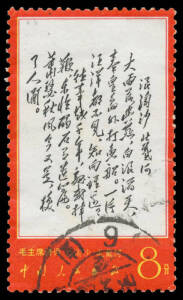 浪淘沙 北戴河
大雨落幽燕,白浪滔天,
秦皇島外打魚船。一片
汪洋都不見,知向谁边?
往事越千年,魏武揮
鞭,东临碣石有遺篇。
萧瑟秋风今又是,換
了人间。
毛主席
中国人民邮政 8分
6